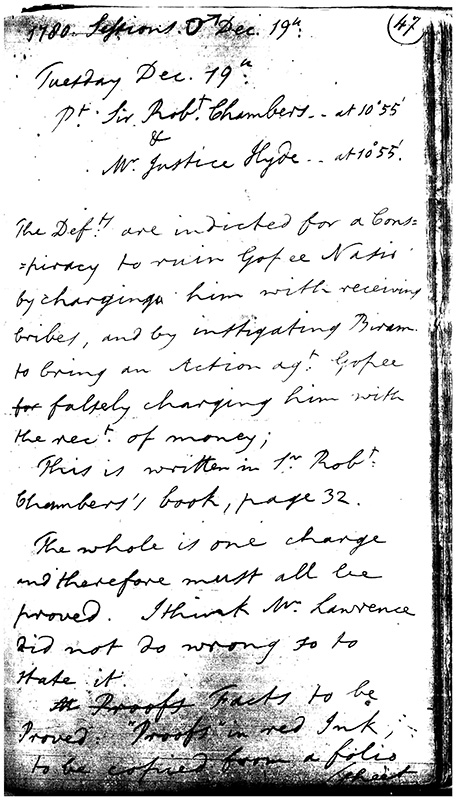 47
1780. Sessions. Or Dec. 19th.
Tuesday Dec. 19th
Pt. Sir Robt. Chambers -- at 10°55'
&
Mr. Justice Hyde -- at 10°55'.
The Defts. are indicted for a Cons=
=piracy to ruin Gopee Nasir
by charging him with receiving
bribes, and by instigating Biram
to bring an Action agt. Gopee
for falsely charging him with
the rect. of money;
This is written in Sr Robt.
Chambers's book, page 32.
The whole is one charge
and therefore must all be
proved. I think Mr. Lawrence
did not do wrong so to
state it
Proofs Facts to be
Proved. "Proofs" in red Ink;
to be copied from a folio
sheet